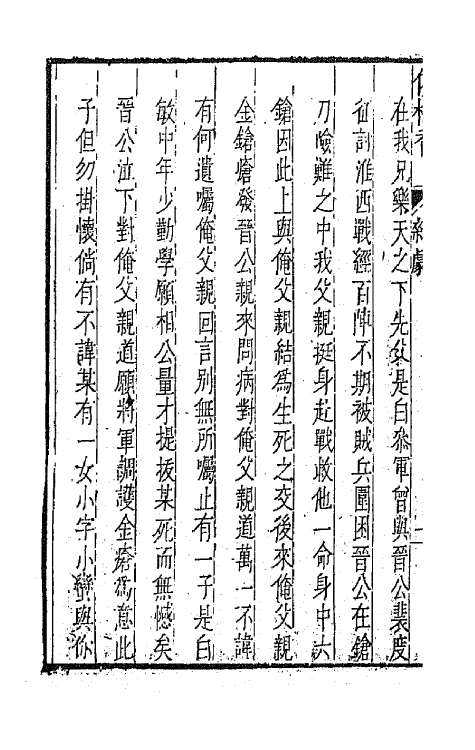 在我兄樂天之下先父是白叅軍曾與晉公裴度
征討淮西戰經百陣不期被賊兵圍困晉公在鎗
刀嶮難之中我父親挺身赴戰救他一命身中六
鎗因此上與俺父親結爲生死之交後來俺父親
金鎗瘡發晉公親來問病對俺父親道萬一不諱
有何遺囑俺父親回言别無所囑止有一子是白
敏中年少勤學願相公量才提拔某死而無憾矣
晉公泣下對俺父親道願將軍調護金瘡爲意此
子但勿掛懷倘有不諱某有一女小字小蠻與你